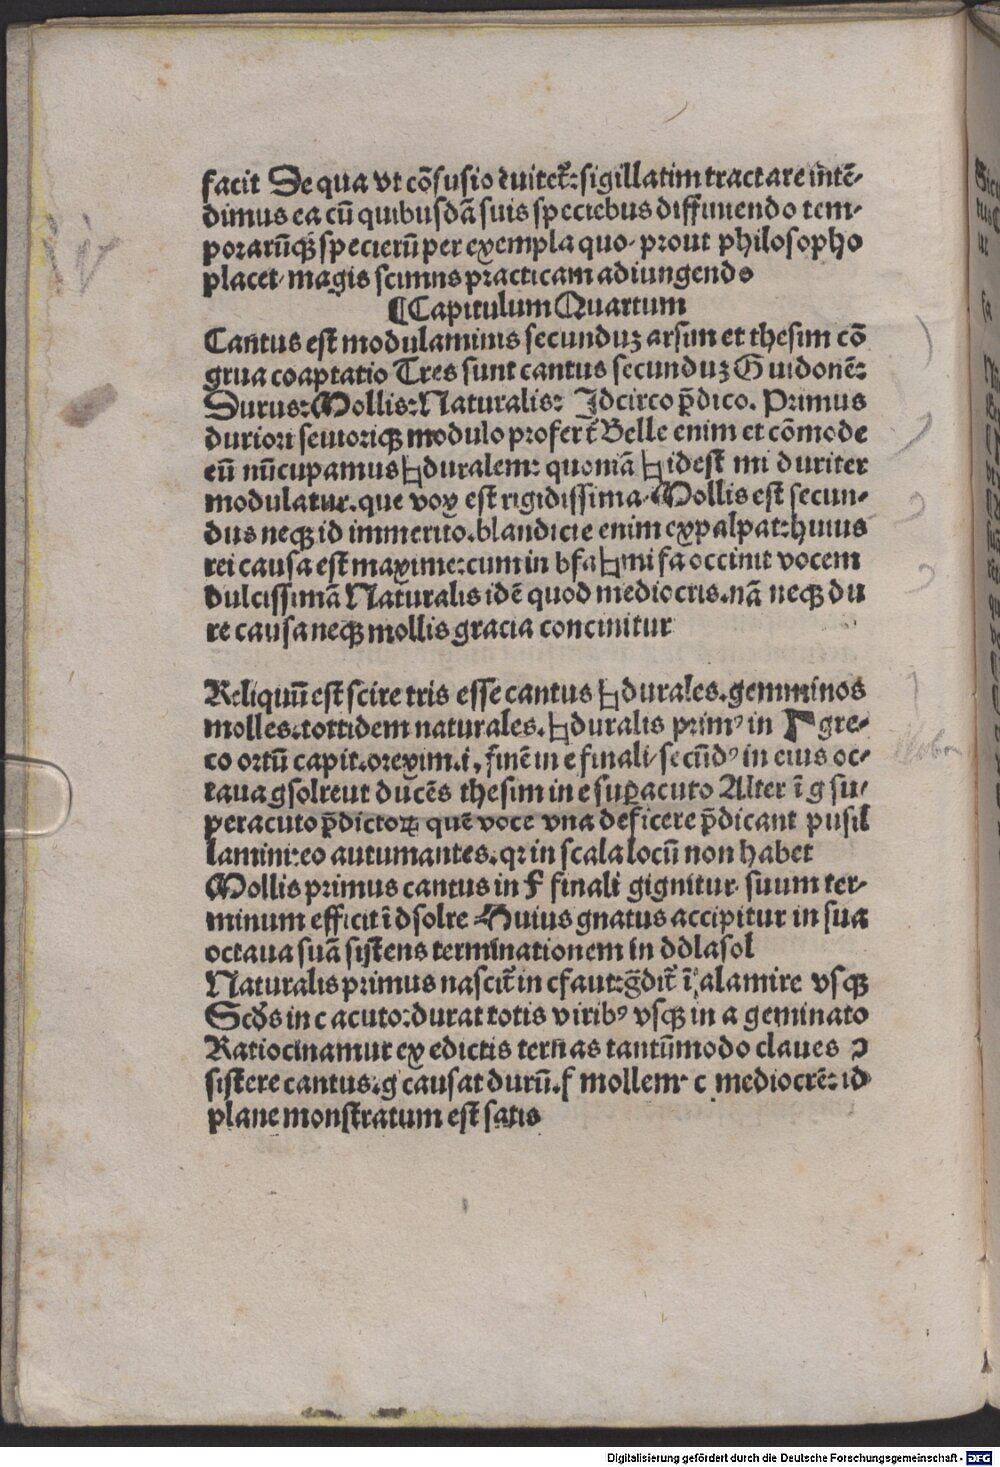 facit De qua vt cōfusio euitet᷑: sigillatim tractare intē-
dimus ea cū quibusdā suis speciebus diffiniendo tem-
porarūqꝫ specierū per exempla quo· prout philosopho
placet· magis scimus practicam adiungendo
¶Capitulum Quartum
Cantus est modulaminis secunduꝫ arsim et thesim cō
grua coaptatio Tres sunt cantus secunduꝫ Guidonē:
Durus: Mollis: Naturalis: Idcirco p̄dico. Primus
duriori seuiorīqꝫ modulo profert᷑ Belle enim et cōmode
eū nūcupamus ♮duralem: quoniā ♮ idest mi duriter
modulatur. que vox est rigidissima· Mollis est secun-
dus neqꝫ id immerito. blandicie enim expalpat: huius
rei causa est maxime: cum in bfa♮mi fa occinit vocem
dulcissimā Naturalis idē quod mediocris. nā neqꝫ du
re causa neqꝫ mollis gracia concinitur
Reliquū est scire tris esse cantus ♮durales. gemminos
molles: tottidem naturales. ♮duralis primꝰ in Γ gre-
co ortū capit. orexim. i. finē in e finali/ secūdꝰ in eius oc-
taua gsolreut ducēs thesim in e suꝑacuto Alter ī g su-
peracuto p̄dictoꝝ quē voce vna deficere p̄dicant pusil
lamini: eo autumantes. qꝛ in scala locū non habet
Mollis primus cantus in F finali gignitur· suum ter-
minum efficit ī dsolre Huius gnatus accipitur in sua
octaua suā sistens terminationem in ddlasol
Naturalis primus nascit᷑ in cfaut: g̃dit᷑ ī alamire vsqꝫ
Scďs in c acuto: durat totis viribꝰ vsqꝫ in a geminato
Ratiocinamur ex edictis ternas tantūmodo claues ꝛ
sistere cantus. g causat durū. f mollem· c mediocrē: id
plane monstratum est satis
Digitalisierung gefördert durch die Deutsche Forschungsgemeinschaft - DFG